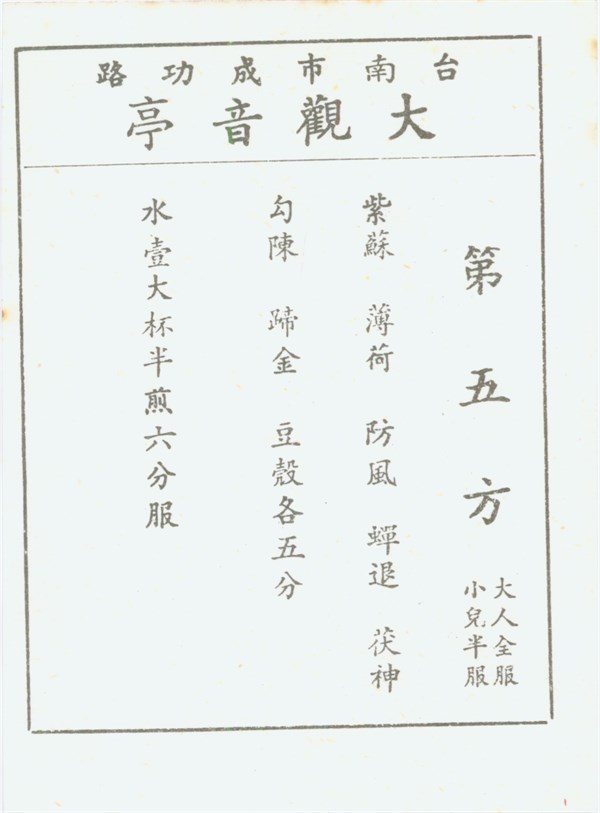 台南市成功路
大觀音亭
第五方
大人全服
小兒半服
紫蘇 薄荷 防風 蟬退 茯神
勾陳 蹄金 豆殼各五分
水壹大杯半煎六分服